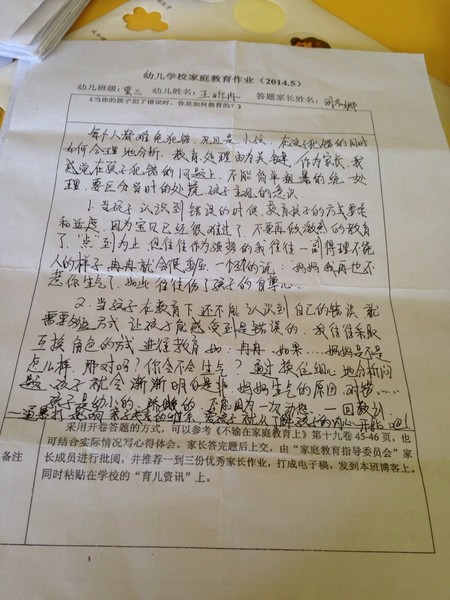 幼儿学校家庭教育作业（2014.5）
幼儿班级：蒙三 幼儿姓名：王昕冉 答题家长姓名：
《当你的孩子犯了错误时，你是如何教育的？》
每个人都难免犯错，况且是小孩，在孩子犯错的同时
如何合理地分析，教育，处理由为关键，作为家长，我
感觉在孩子犯错的问题上，不能简单粗暴的统一处
理，要区分当时的处境，孩子主观的意识
1. 当孩子认识到错误的时候，教育孩子的方式要委
和适度，因为宝贝已经很难过了，不要再做激烈的教育
了，“点”到为上，但往往作为强势的我往往一副得理不饶
人的样子，冉冉就会很委屈，一个劲的说：妈妈我再也不
惹你生气了，如此往往伤了孩子的自尊心。
2. 当孩子在教育下还不能认识到自己的错误，就
需要别的方式，让孩子能感受到是错误的，我往往采取
互换角色的方式进行教育，如：冉冉，如果……妈妈是不是
怎么样，那对吗？你会不会生气？通过换位细心地分析问
题，孩子就会渐渐明白是非，妈妈生气的原因，对错……
孩子是幼小的，娇嫩的，不能因为一次动怒，一回教训，
采用开卷答题的方式，可以参考《不输在家庭教育上》第十九卷 45-46 页，也
可结合实际情况写心得体会。家长答完题后上交，由“家庭教育指导委员会”家
备注
长成员进行批阅，并推荐一到三份优秀家长作业，打成电子稿，发到本班博客上。
同时粘贴在学校的“育儿资讯”上。